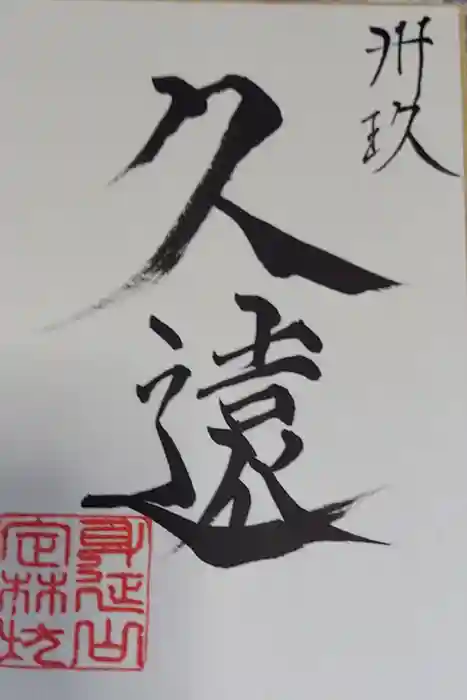 玖
久遠
身延山
定林坊